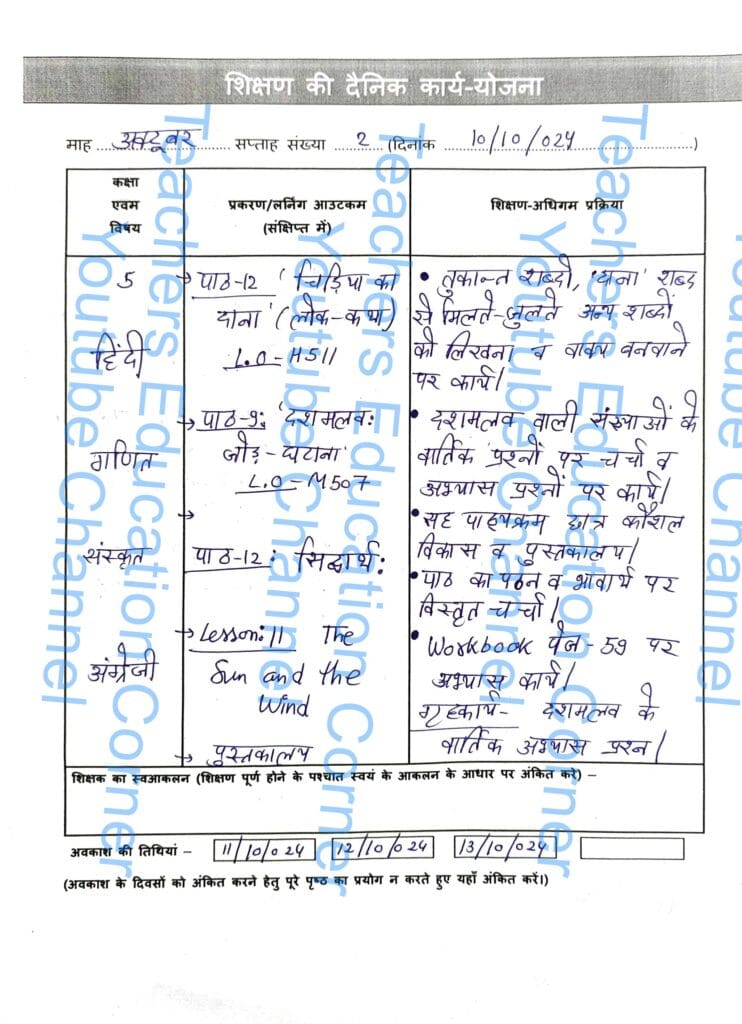 शिक्षण की दैनिक कार्य-योजना
माह अक्टूबर सप्ताह संख्या 2 (दिनांक 10/10/024)
कक्षा
एवम
विषय
प्रकरण/लर्निंग आउटकम
(संक्षिप्त में)
शिक्षण-अधिगम प्रक्रिया
5
हिंदी
गणित
संस्कृत
अंग्रेजी
→ पाठ-12 'चिड़िया का
दाना' (लोक-कथा)
L.O-H511
→ पाठ-9: 'दशमलव:
जोड़-घटाना'
L.O-M507
→
पाठ-12: सिद्धार्थ:
→ Lesson:11 The
Sun and the
Wind
→ पुस्तकालय
• तुकान्त शब्दो, 'दाना' शब्द
से मिलते-जुलते अन्य शब्दों
को लिखना व वाक्य बनवाने
पर कार्य।
• दशमलव वाली संख्याओं के
वार्तिक प्रश्नों पर चर्चा व
अभ्यास प्रश्नों पर कार्य।
• सह पाठ्यक्रम छात्र कौशल
विकास व पुस्तकालय।
• पाठ का पठन व भावार्थ पर
विस्तृत चर्चा।
• Workbook पेज-59 पर
अभ्यास कार्य।
गृहकार्य- दशमलव के
वार्तिक अभ्यास प्रश्न।
शिक्षक का स्वआकलन (शिक्षण पूर्ण होने के पश्चात स्वयं के आकलन के आधार पर अंकित करे) –
अवकाश की तिथियां – 11/10/024 12/10/024 13/10/024
(अवकाश के दिवसों को अंकित करने हेतु पूरे पृष्ठ का प्रयोग न करते हुए यहाँ अंकित करें।)
Teachers Education Corner
Youtube Channel
Teachers Education Corner
Youtube Channel
Teachers Education Corner
Youtube Channel